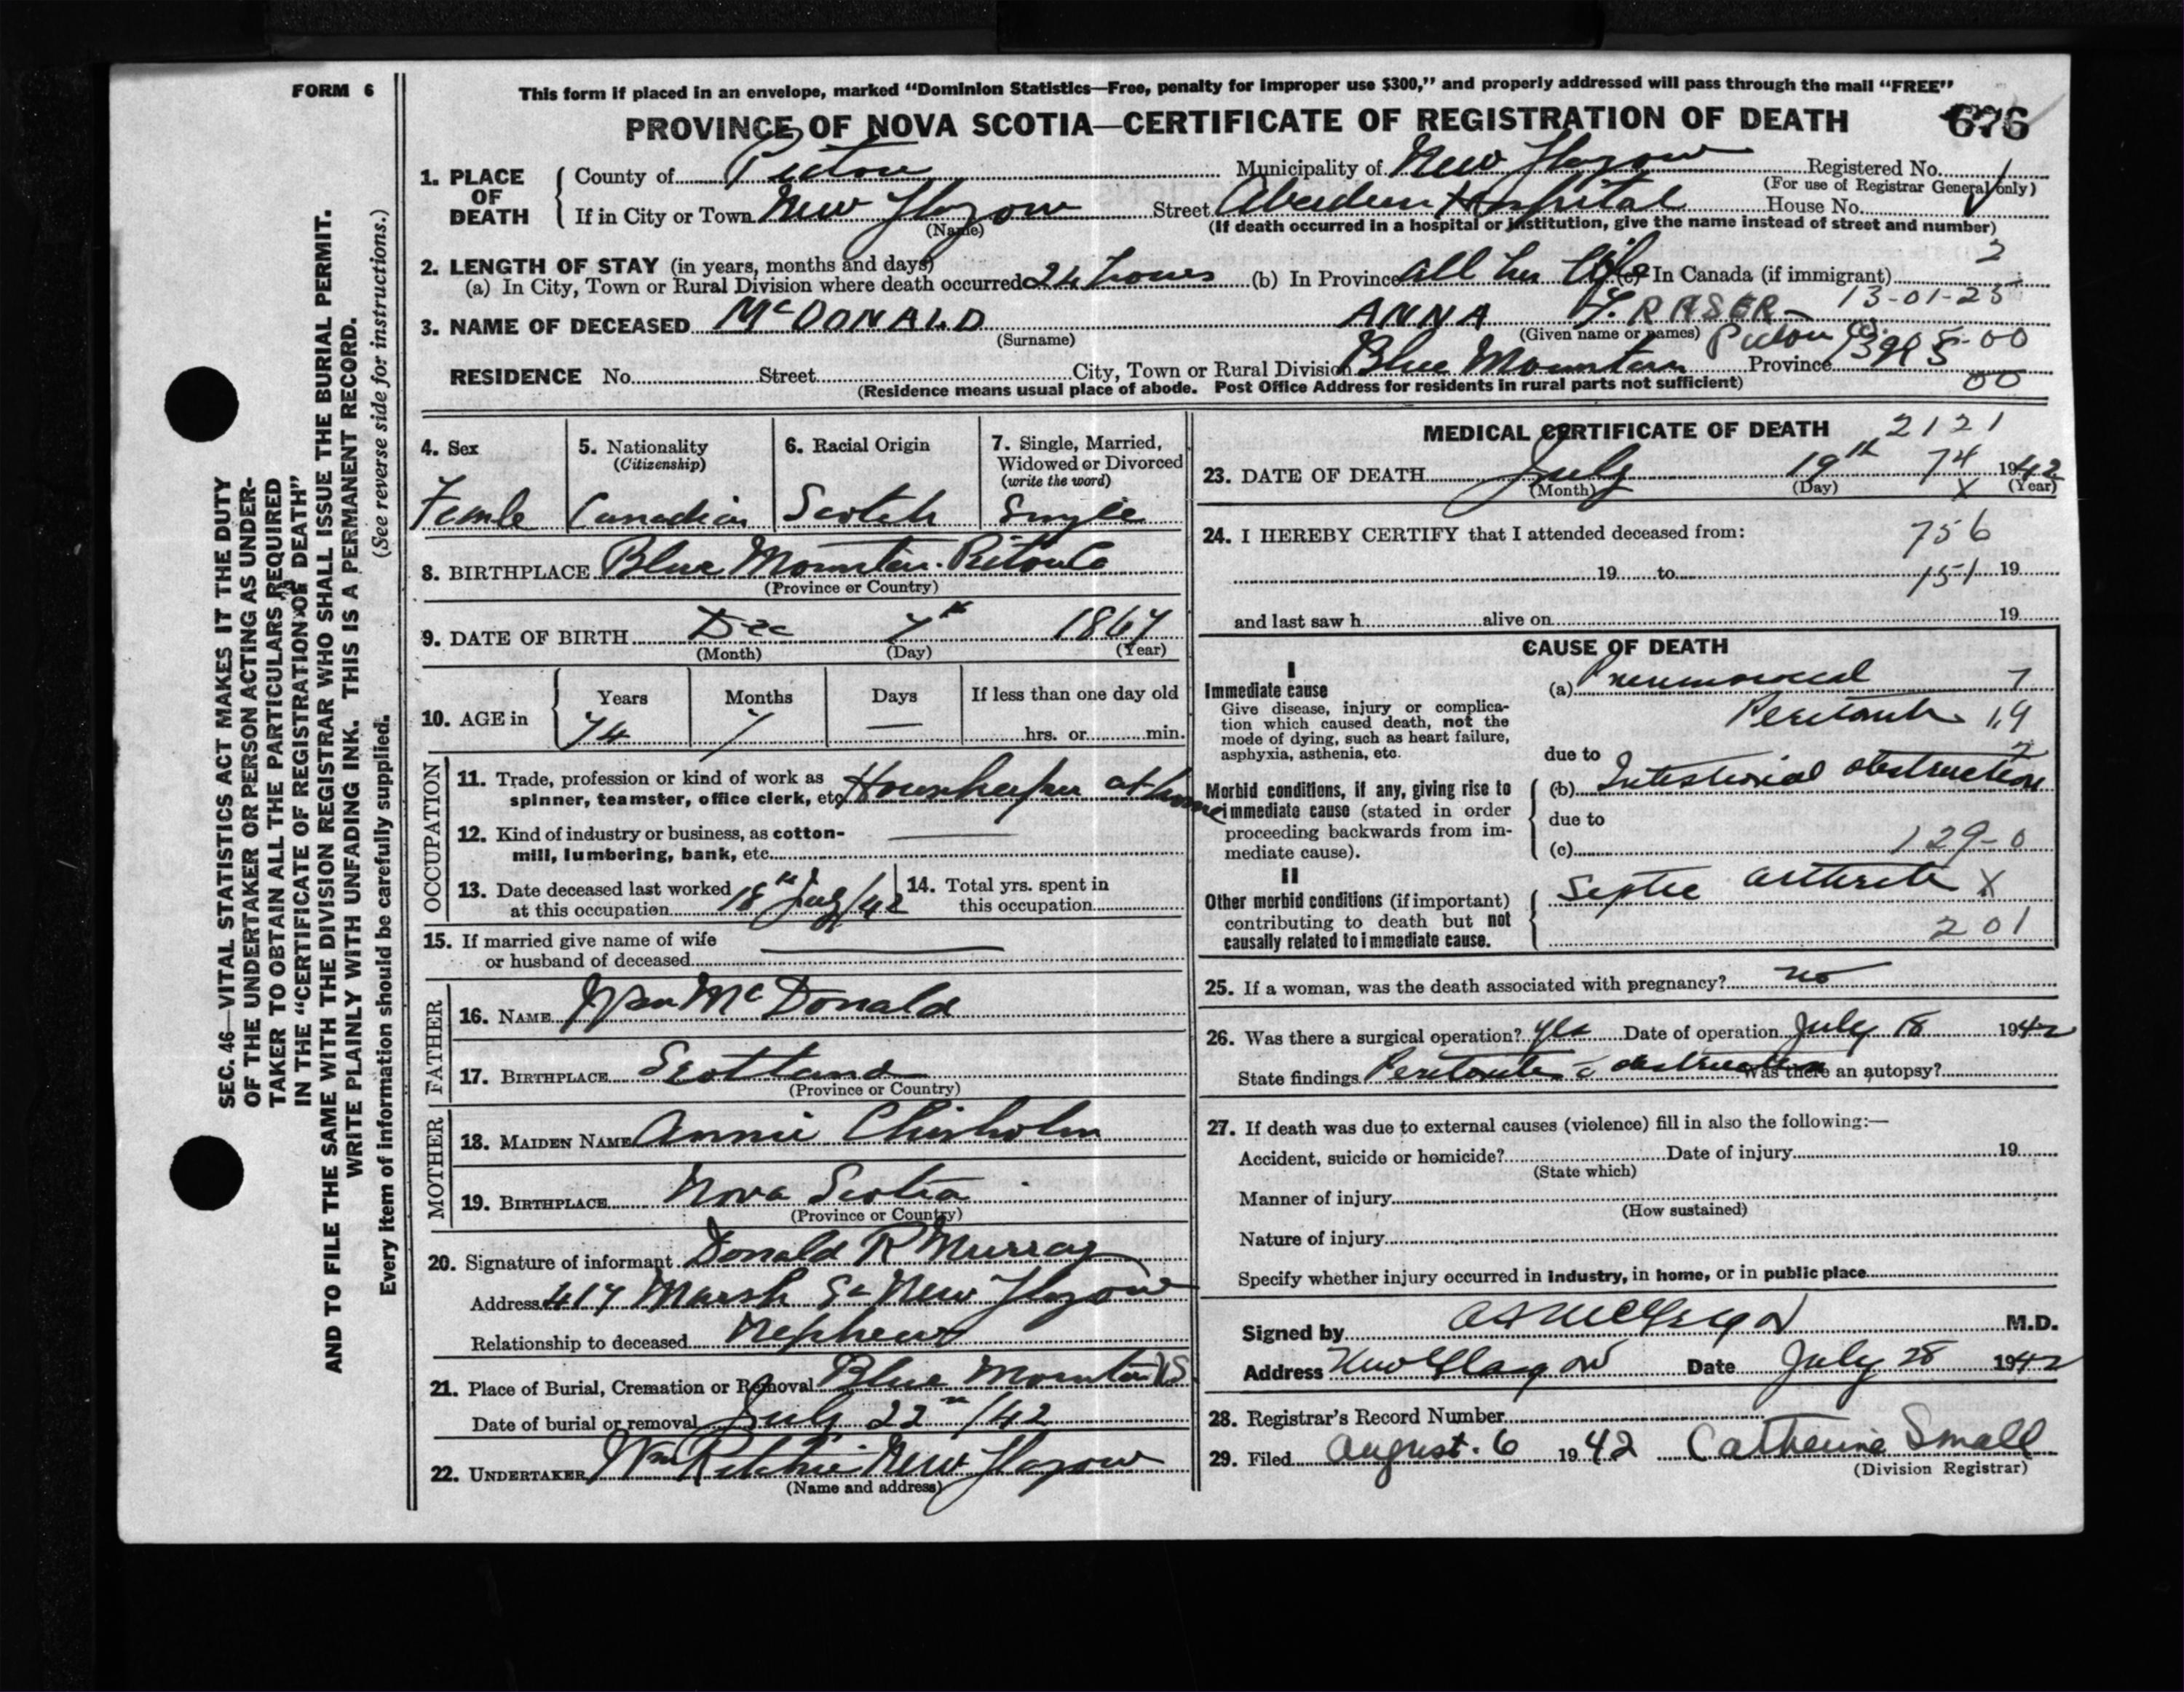 FORM 6
This form if placed in an envelope, marked “Dominion Statistics—Free, penalty for improper use $300,” and properly addressed will pass through the mail “FREE”
PROVINCE OF NOVA SCOTIA—CERTIFICATE OF REGISTRATION OF DEATH 676
SEC. 46—VITAL STATISTICS ACT MAKES IT THE DUTY
OF THE UNDERTAKER OR PERSON ACTING AS UNDER-
TAKER TO OBTAIN ALL THE PARTICULARS REQUIRED
IN THE “CERTIFICATE OF REGISTRATION OF DEATH”
AND TO FILE THE SAME WITH THE DIVISION REGISTRAR WHO SHALL ISSUE THE BURIAL PERMIT.
WRITE PLAINLY WITH UNFADING INK. THIS IS A PERMANENT RECORD.
Every item of information should be carefully supplied. (See reverse side for instructions.)
1. PLACE OF DEATH
County of Pictou Municipality of New Glasgow Registered No.
(For use of Registrar General only)
If in City or Town New Glasgow Street Aberdeen Hospital House No.
(Name) (If death occurred in a hospital or institution, give the name instead of street and number)
2. LENGTH OF STAY (in years, months and days) 2
(a) In City, Town or Rural Division where death occurred 24 hours (b) In Province all her life (c) In Canada (if immigrant)
13-01-25
3. NAME OF DECEASED McDONALD ANNA FRASER
(Surname) (Given name or names)
RESIDENCE No. Street City, Town or Rural Division Blue Mountain Pictou Co. Province
(Residence means usual place of abode. Post Office Address for residents in rural parts not sufficient) 00
4. Sex Female
5. Nationality (Citizenship) Canadian
6. Racial Origin Scotch
7. Single, Married, Widowed or Divorced (write the word) Single
8. BIRTHPLACE Blue Mountain Pictou Co
(Province or Country)
9. DATE OF BIRTH Dec 7th 1867
(Month) (Day) (Year)
10. AGE in Years 74 Months 7 Days — If less than one day old hrs. or min.
OCCUPATION
11. Trade, profession or kind of work as spinner, teamster, office clerk, etc. Housekeeper at home
12. Kind of industry or business, as cotton-mill, lumbering, bank, etc. —
13. Date deceased last worked at this occupation 18th July/42
14. Total yrs. spent in this occupation
15. If married give name of wife or husband of deceased —
FATHER
16. NAME Wm McDonald
17. BIRTHPLACE Scotland
(Province or Country)
MOTHER
18. MAIDEN NAME Annie Chisholm
19. BIRTHPLACE Nova Scotia
(Province or Country)
20. Signature of informant Donald R Murray
Address 417 Marsh St New Glasgow
Relationship to deceased Nephew
21. Place of Burial, Cremation or Removal Blue Mountain NS
Date of burial or removal July 22nd/42
22. UNDERTAKER Wm Ritchie New Glasgow
(Name and address)
MEDICAL CERTIFICATE OF DEATH 2121
23. DATE OF DEATH July 19th 74 1942
(Month) (Day) X (Year)
24. I HEREBY CERTIFY that I attended deceased from: 756
19 to 151 19
and last saw h alive on 19
CAUSE OF DEATH
I
Immediate cause
Give disease, injury or complication which caused death, not the mode of dying, such as heart failure, asphyxia, asthenia, etc.
(a) Pneumococcal 7
Peritonitis 19
due to
Morbid conditions, if any, giving rise to immediate cause (stated in order proceeding backwards from immediate cause).
(b) Intestinal obstruction
due to
(c) 129-0
II
Other morbid conditions (if important) contributing to death but not causally related to immediate cause.
Septic arthritis X
201
25. If a woman, was the death associated with pregnancy? no
26. Was there a surgical operation? yes Date of operation July 18 1942
State findings Peritonitis c obstruction Was there an autopsy?
27. If death was due to external causes (violence) fill in also the following:—
Accident, suicide or homicide? Date of injury 19
(State which)
Manner of injury
(How sustained)
Nature of injury
Specify whether injury occurred in industry, in home, or in public place
Signed by M.D.
Address New Glasgow Date July 28 1942
28. Registrar's Record Number
29. Filed August. 6 1942 Catherine Small
(Division Registrar)